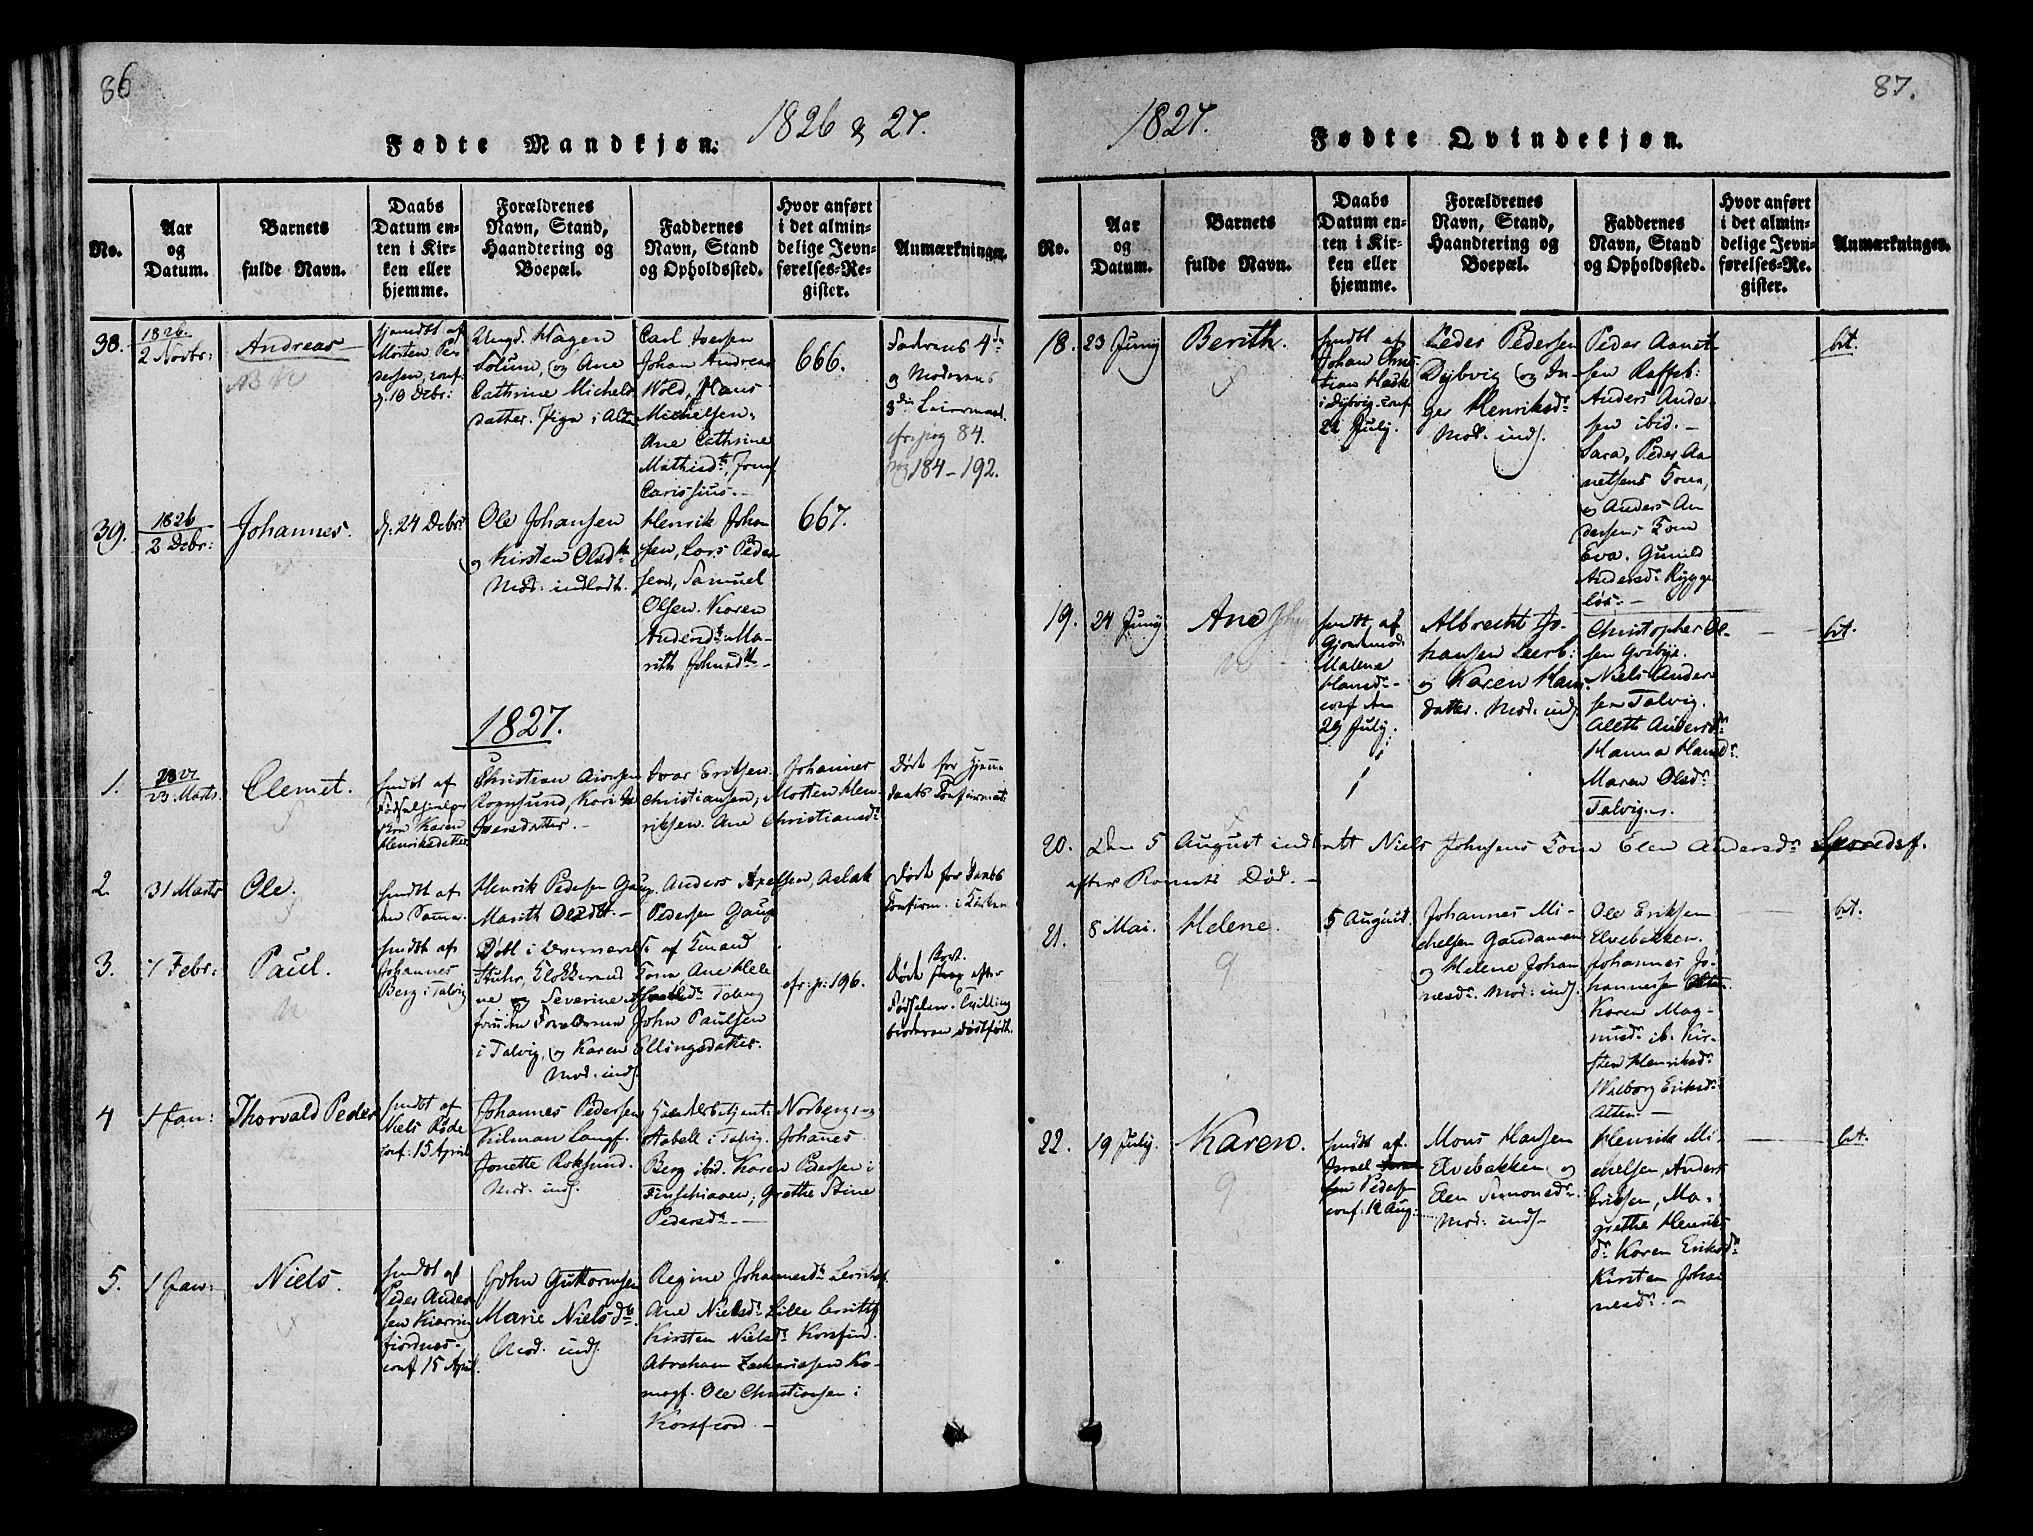 86
Fødte Mandkjøn.
1826 & 27.
No.
Aar
og
Datum.
Barnets
fulde Navn.
Daabs
Datum en-
ten i Kir-
ken eller
hjemme.
Forældrenes
Navn, Stand,
Haandtering og
Boepæl.
Faddernes
Navn, Stand
og Opholdssted.
Hvor anført
i det almin-
delige Jevn-
førelses-Re-
gister.
Anmærkninger.
38.
1826.
2 Novbr:
Andreas
hjemdt af
Morten Pe-
dersen, conf:
10 Debr:
Ungk. Hagen
og Ane
Cathrine Michels
datter. Alten
Carl Iversen
Johan Andreas
Wold, Hans
Michelsen,
Ane Cathrine
Mathisd.
666.
Faderens 4de
og Moderens
3die Leiermaal.
cfr. pag 84.
pag 184-192.
39.
1826
2 Debr:
Johannes.
d. 24 Debr:
Ole Johansen
og Kirsten Olsdtr.
Mod: indladt.
Henrik Johan
sen, Lars Peder
sen, Samuel
Olsen. Karen
Andersdtr. Ma-
rith Johnsdtr.
667.
1827.
1.
1827
23 Marts
Clemet.
hmdt af
Fødselshjelper
sken Karen
Henriksdatter
Christian
Rognsund, Kari
Iversdatter.
Ivar Eriksen. Johannes
Christiansen, Morten Hen-
riksen. Ane Christiansdr
Døde for Hjemme
daabs Confirmat:
2.
31 Marts
Ole.
hmdt af
den Samme.
Henrik Pedersen Gaup.
Marith Olsdtr.
Anders Axelsen, Aslak
Pedersen Gaup
Døde for Daabs
Confirm. i Kirken
3.
7 Febr:
Paul.
hmdt af
Johannes
Berg i Talvig
Døbt i Overværelse af Smaad
Stuhr, Klokkerens Kone Ane Hele
ne og Severine
foruden Forældrene John Paulsen
i Talvig, og Karen Ellingsdatter.
Mod. inds.
cfr. p. 196.
Døde strax efter
Fødselen. Tvilling
broderen dødfødt.
4
1 Jan:
Thorvald Peder
hmdt af
Niels Røde
conf: 15 April
Johannes Pedersen
Kilman Langf.
Jonette Roksund.
Mod. inds.
Handelsbetjent: Norberg og
Stabell i Talvig. Johanes
Berg ibid. Karen Pedersen i
Finschiaven, Grethe Stine
Pedersdr.
5.
1 Jan:
Niels.
hmdt af
Peder Ander
sen Kierring
fiordnes.
conf 15 April.
John Guttormsen
Marie Nielsdr.
Mod. inds.
Regine Johannesdr
Ane Nielsdr. Lille
Kirsten Nielsdr Korsfiord.
Abraham Zachariasen Ko-
magf. Ole Christiansen i
Korsfiord.
1827.
Fødte Qvindekjøn.
87.
No.
Aar
og
Datum.
Barnets
fulde Navn.
Daabs
Datum en-
ten i Kir-
ken eller
hjemme.
Forældrenes
Navn, Stand,
Haandtering og
Boepæl.
Faddernes
Navn, Stand
og Opholdssted.
Hvor anført
i det almin-
delige Jevn-
førelses-Re-
gister.
Anmærkninger.
18.
23 Juny
Berith.
hmdt af
Johan Chri
stian
i Dybvig. conf
22 July.
Peder Pedersen
Dybvig og In-
ger Henriksdr.
Mod. inds.
Peder Aanet
sen Raffeb:
Anders Ander-
sen ibid.
Sara, Peder Aa-
netsens Kone,
og Anders An
dersens Kone
Eva. Gunild
Andersdr.
brt.
19.
24 Juny
Ane
hmdt af
Gjordemod
Malene
Hansdr
conf den
29 July.
Albrecht Jo-
hansen Leerb:
og Karen Hans
datter. Mod: inds.
Christopher Ol-
sen
Niels Ander
sen Talvig.
Aleth Andersdr
Hanna Hansdr
Maren Olsdr
Talvig.
brt.
20.
Den 5 August indledt Niels Johnsens Kone Elen Andersdr
after Barnets Død.
21.
8 Mai.
Helene.
5 August.
Johannes Mi-
chelsen
og Helene Johan
nesdr. Mod: inds.
Ole Eriksen
Elvebakken.
Johannes Jo-
hannessen
Karen Mag-
nusdr. ib. Kir-
sten Henriksdr
Walborg Eriksdr
Alten.
brt.
22.
19 July.
Karen.
hmdt af
Israel
Pedersen
conf: 12 Aug:
Mons Hansen
Elvebakken, og
Elen Simonsdr.
Mod: inds.
Henrik Mi-
chelsen, Anders
Eriksen, Ma-
grethe Henriks
dr. Karen Eriksdr
Kirsten Johan
nesdr.
brt.